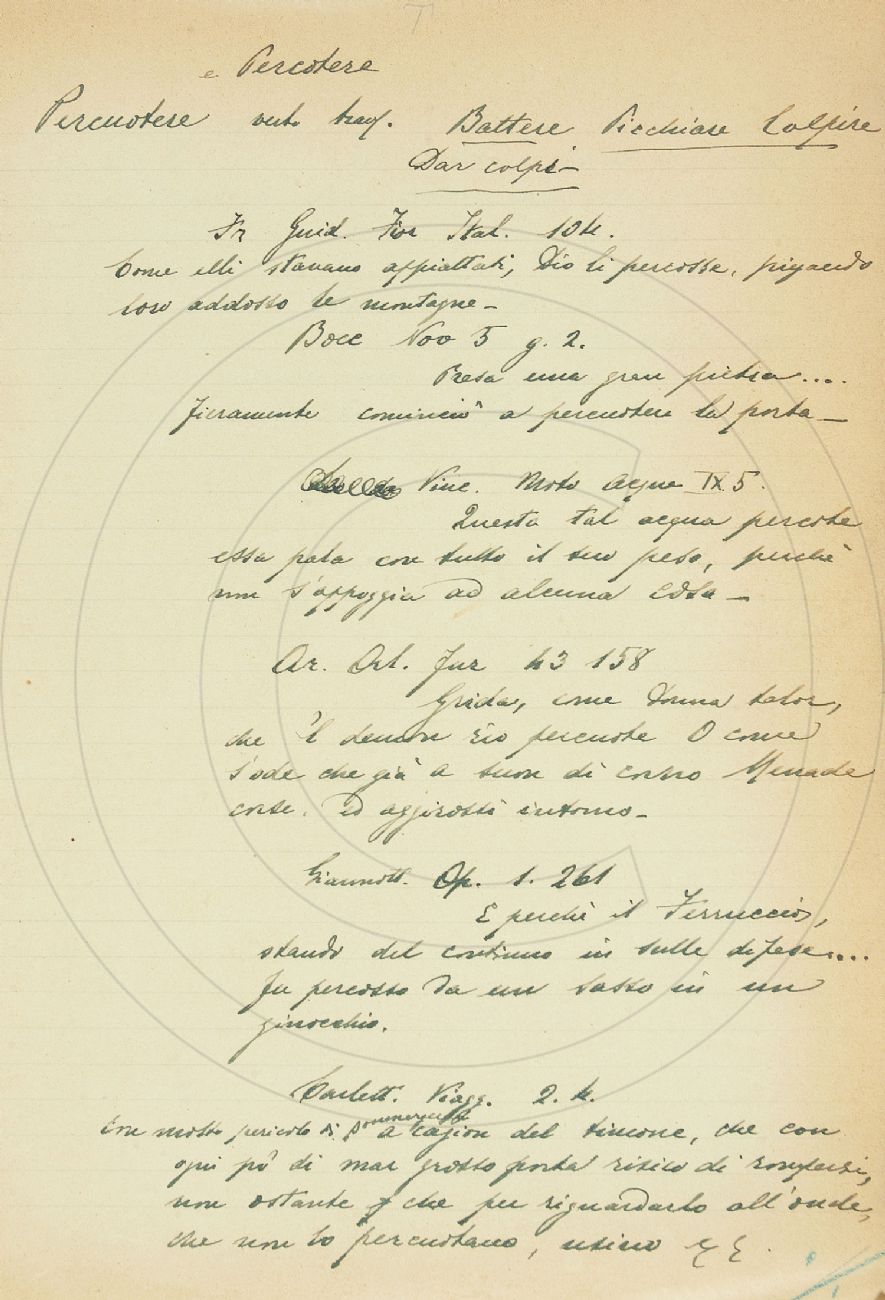 e Percotere
Percuotere verbo trans. Battere Picchiare Colpire
Dar colpi-
Fr Guid. Fior Ital. 104.
Come elli stavano appiattati, Dio li percosse, pigiando
loro addosso le montagne-
Bocc Nov 5 g. 2.
Presa una gran pietra....
fieramente cominciò a percuotere la porta-
Vinc. Moto acque IX. 5.
Questa tal acqua percote
essa pala con tutto il suo peso, perchè
non s'appoggia ad alcuna cosa-
Ar. Orl. Fur 43 158
Grida, come donna talor,
che 'l demon rio percuote O come
s'ode che già a suon di corno Menade
corse, ed aggirossi intorno-
Giannott. Op. 1. 261
E perchè il Ferruccio,
stando del continuo in sulle difese....
fu percosso da un sasso in un
ginocchio.
Carlett. Viagg. 2. 4.
Con molto pericolo di a cagion del timone, che con
ogni pò di mar grosso porta risico di rompersi,
non ostante che per riguardarlo all'onde,
che non lo percuotano, usino